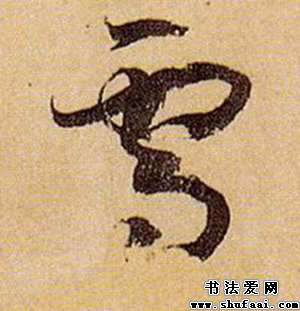 雪
书法爱网
www.shufaai.com